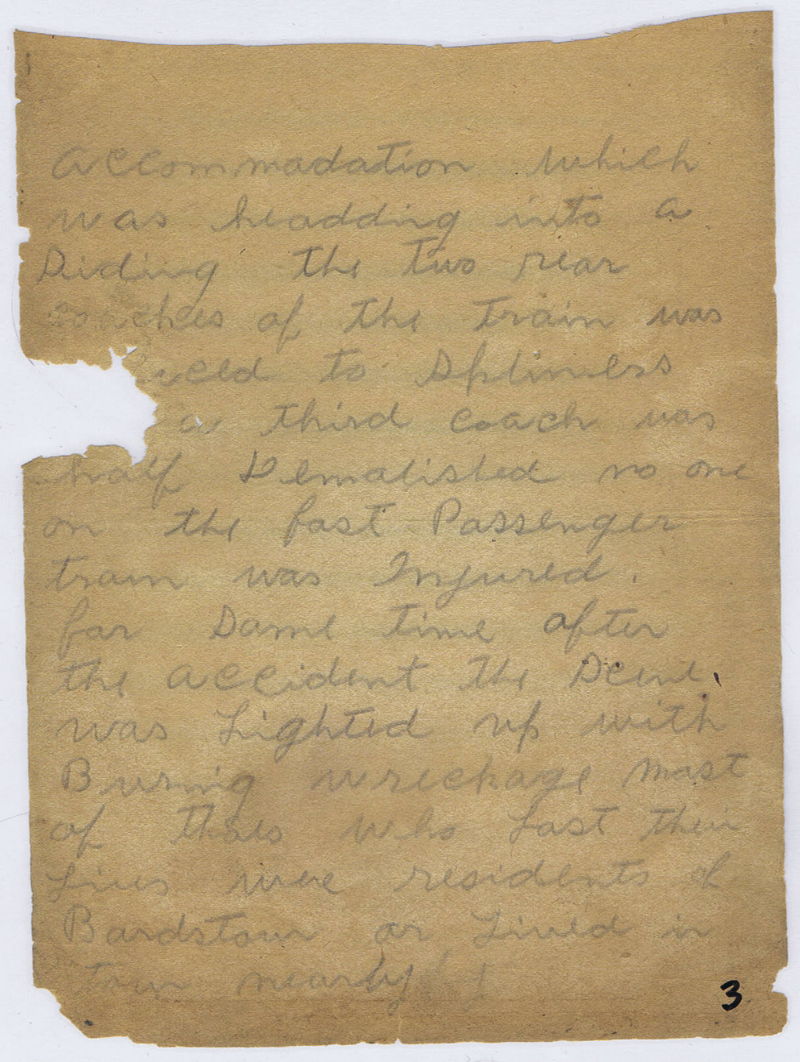 accommadation which
was headding into a
Siding the two rear
coaches of the train was
to Spliners
a third coach was
half Demalished no one
on the fast Passenger
train was Injured.
far Same time after
the accident the Scene
was Lighted up with
Burning wreckage mast
of thaes who Last their
Lives were residents of
Bardstown or Lived in
town nearby
3